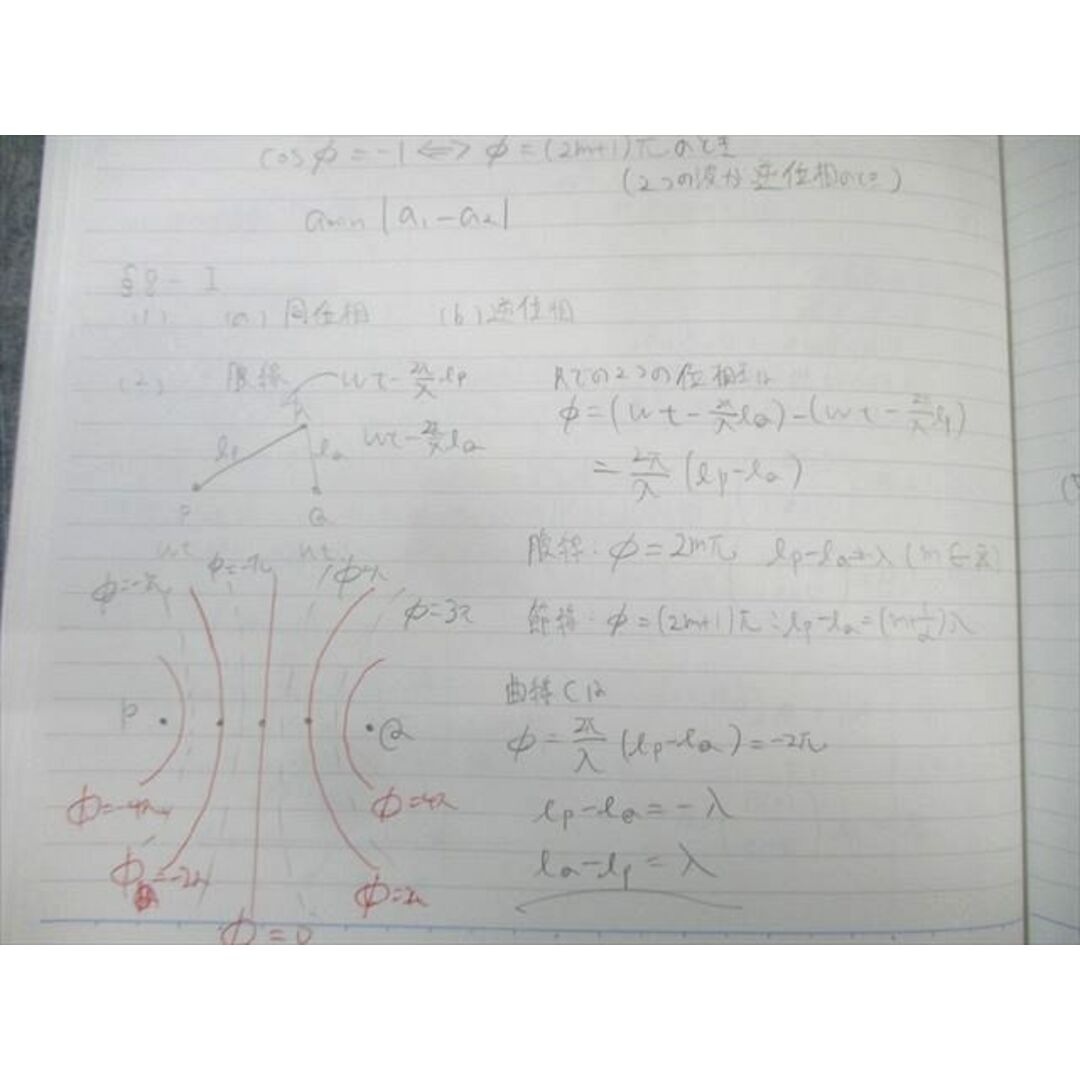 cosφ=-1⇔φ=(2m+1)πのとき
(2つの波が逆位相のとき)
amin |a₁-a₂|
§8-I
(1) (a)同位相 (b)逆位相
(2) 腹線 wt-2π/λ lp
lp lQ wt-2π/λ lQ
P Q
wt wt
Rでの2つの位相差は
φ=(wt-2π/λ lQ)-(wt-2π/λ lp)
=2π/λ (lp-lQ)
腹線:φ=2mπ lp-lQ λ (m∈Z)
節線:φ=(2m+1)π:lp-lQ=(m+1/2)λ
φ=-3π φ=-π φ=π φ=3π
P Q
φ=-4π φ=4π
φ=-2π φ=2π
φ=0
曲線Cは
φ=2π/λ (lp-lQ)=-2π
lp-lQ=-λ
lQ-lp=λ